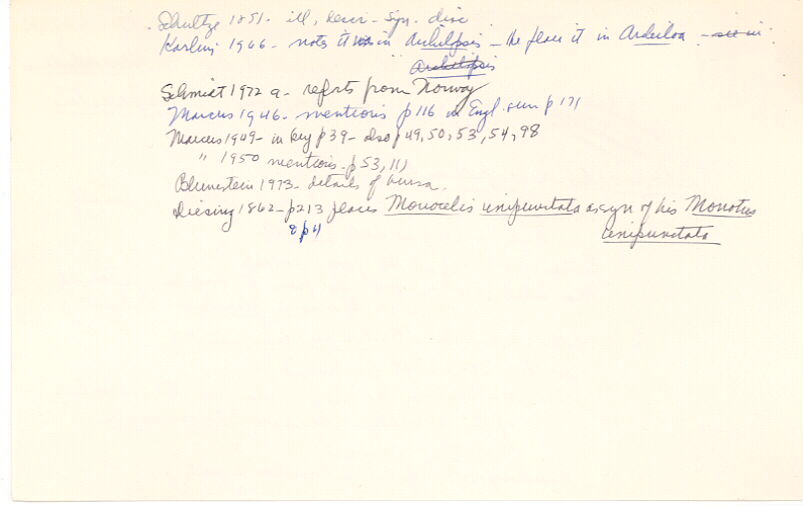 Schultze 1851- ill, descr - syn - disc
Karling 1966 - notes it in Archilopsis - He places it in Archiloa - see in
Archilopsis
Schmidt 1972 a - reports from Norway
Marcus 1946 - mentions p 116 in Engl. sum p 171
Marcus 1949 - in key p 39 - also p 49, 50, 53, 54, 98
" 1950 mentions - p 53, 11)
Blumstein 1973 - details of bursa.
Diesing 1862 - p 213 places Monocelis unipunctata as syn of his Monotus
& p 4 unipunctata